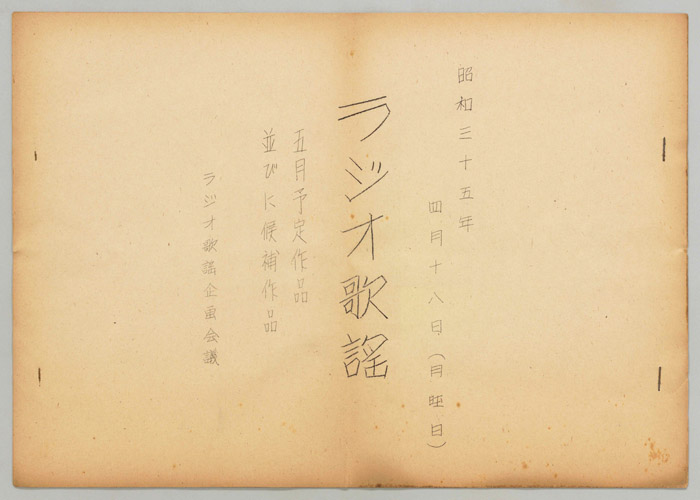 昭和三十五年
四月十八日(月旺日)
ラジオ歌謡
五月予定作品
並びに候補作品
ラジオ歌謡企画会議